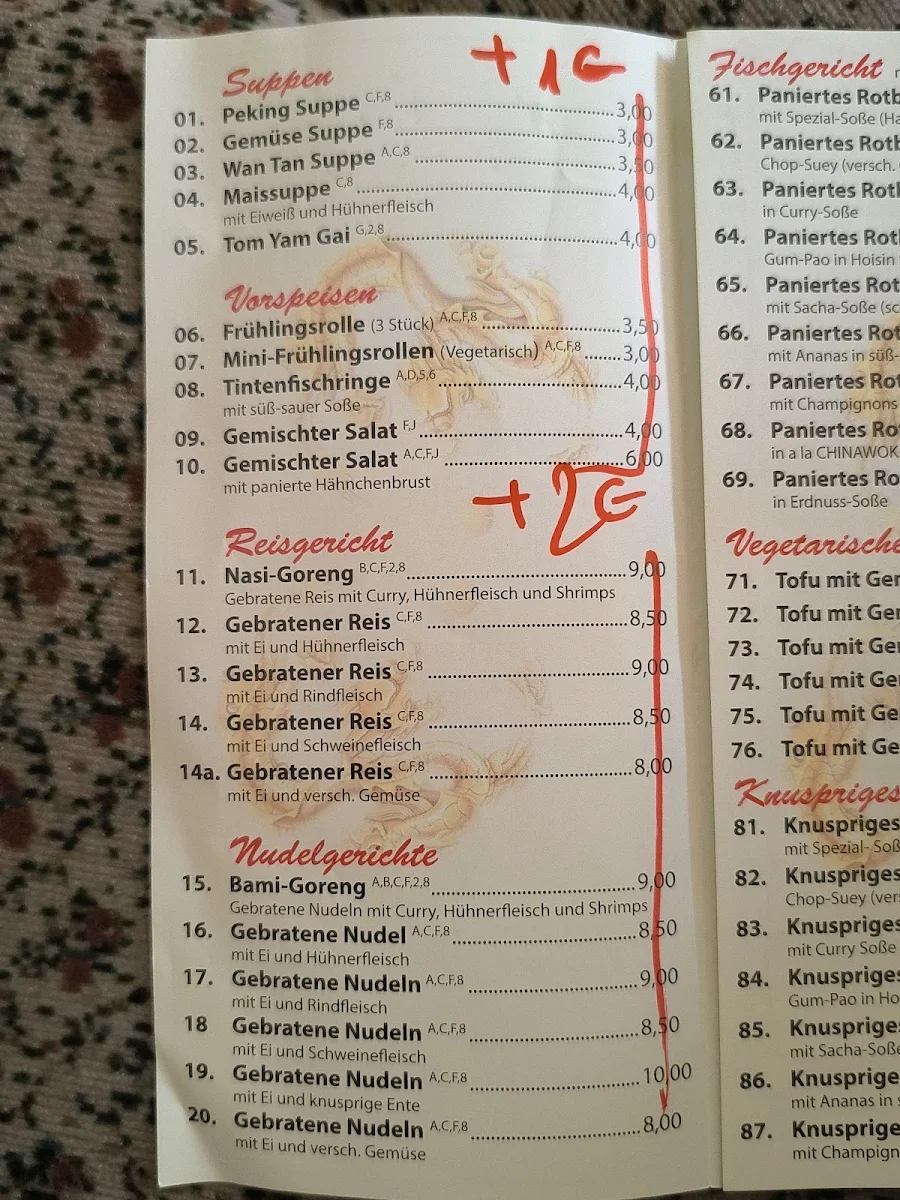 + 1€
Suppen
01. Peking Suppe C,F,8 3,00
02. Gemüse Suppe F,8 3,00
03. Wan Tan Suppe A,C,8 3,50
04. Maissuppe C,8 4,00
mit Eiweiß und Hühnerfleisch
05. Tom Yam Gai G,2,8 4,00
Vorspeisen
06. Frühlingsrolle (3 Stück) A,C,F,8 3,50
07. Mini-Frühlingsrollen (Vegetarisch) A,C,F,8 3,00
08. Tintenfischringe A,D,5,6 4,00
mit süß-sauer Soße
09. Gemischter Salat F,J 4,00
10. Gemischter Salat A,C,F,J 6,00
mit panierte Hähnchenbrust
+ 2€
Reisgericht
11. Nasi-Goreng B,C,F,2,8 9,00
Gebratene Reis mit Curry, Hühnerfleisch und Shrimps
12. Gebratener Reis C,F,8 8,50
mit Ei und Hühnerfleisch
13. Gebratener Reis C,F,8 9,00
mit Ei und Rindfleisch
14. Gebratener Reis C,F,8 8,50
mit Ei und Schweinefleisch
14a. Gebratener Reis C,F,8 8,00
mit Ei und versch. Gemüse
Nudelgerichte
15. Bami-Goreng A,B,C,F,2,8 9,00
Gebratene Nudeln mit Curry, Hühnerfleisch und Shrimps
16. Gebratene Nudel A,C,F,8 8,50
mit Ei und Hühnerfleisch
17. Gebratene Nudeln A,C,F,8 9,00
mit Ei und Rindfleisch
18 Gebratene Nudeln A,C,F,8 8,50
mit Ei und Schweinefleisch
19. Gebratene Nudeln A,C,F,8 10,00
mit Ei und knusprige Ente
20. Gebratene Nudeln A,C,F,8 8,00
mit Ei und versch. Gemüse
Fischgericht
61. Paniertes Rotb
mit Spezial-Soße (Ha
62. Paniertes Rotb
Chop-Suey (versch.
63. Paniertes Rotb
in Curry-Soße
64. Paniertes Rotb
Gum-Pao in Hoisin
65. Paniertes Rot
mit Sacha-Soße (sc
66. Paniertes Rot
mit Ananas in süß-
67. Paniertes Rot
mit Champignons
68. Paniertes Ro
in a la CHINAWOK
69. Paniertes Ro
in Erdnuss-Soße
Vegetarische
71. Tofu mit Ger
72. Tofu mit Ger
73. Tofu mit Ger
74. Tofu mit Ge
75. Tofu mit Ge
76. Tofu mit Ge
Knuspriges
81. Knuspriges
mit Spezial- Soß
82. Knuspriges
Chop-Suey (vers
83. Knuspriges
mit Curry Soße
84. Knuspriges
Gum-Pao in Ho
85. Knuspriges
mit Sacha-Soße
86. Knusprige
mit Ananas in s
87. Knusprige
mit Champign